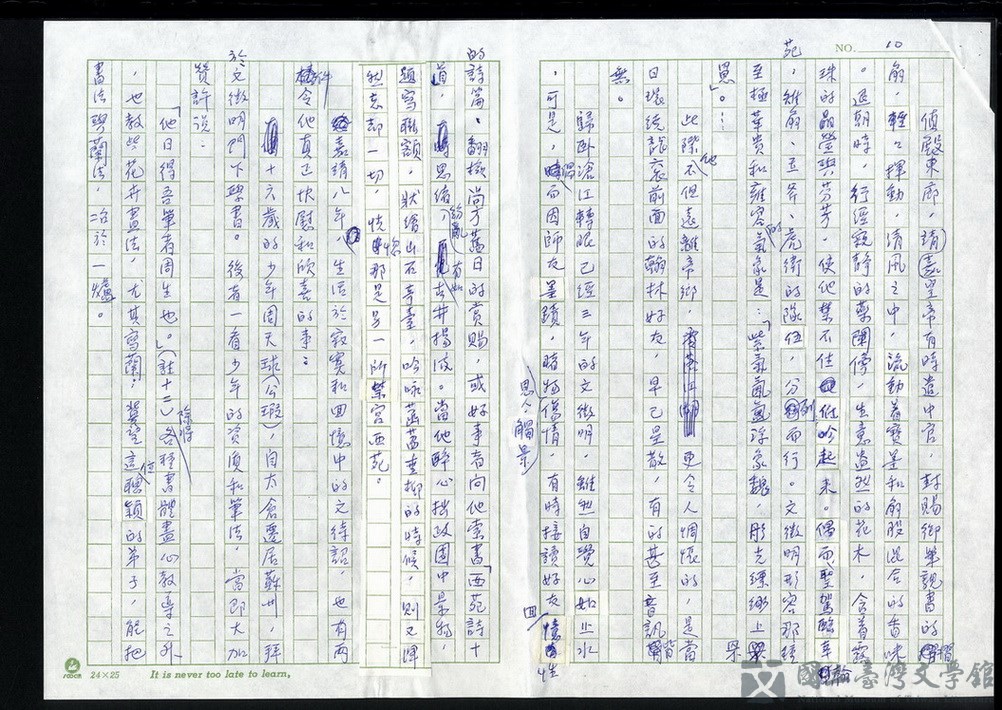 NO. 10
偵殿東廊,靖嘉皇帝有時遣中官,封賜御筆親書的摺
扇,輕輕揮動,清風之中,流動着寶墨和扇股混合的香味
。退朝時,行經寂靜的藥闌傍,生意盎然的花木,含着露
珠的晶瑩與芬芳,使他禁不住低吟起來。偶而聖駕臨幸
苑,雉扇、玉斧、虎衛的隊伍,分列而行。文徵明形容那種
至極華貴和雍容的氣象是:「紫氣氤氳浮象魏,彤光縹緲上罘
罳」。:
此際他不但遠離帝鄉,更令人惆悵的,是當
日環繞龍袞前面的翰林好友,早已星散,有的甚至音訊皆
無。
歸臥滄江轉眼已經三年的文徵明,雖然自覺心如止水
,可是,有時因師友墨蹟,睹物傷情,思人觸景,有時接讀好友回憶性
的詩篇,翻撿尚方舊日的賞賜,或好事者向他索書「西苑詩十
首」,思緒紛亂有如古井揚波。當他醉心拙政園中景物,
題寫聯額,狀繪山石亭臺,吟咏菡萏垂柳的時候,則又渾
然忘却一切,恍惚那是另一所禁宮西苑。
嘉靖八年,生活於寂寞和回憶中的文待詔,也有兩
件令他真正快慰和欣喜的事:
十六歲的少年周天球(公瑕),自太倉遷居蘇州,拜
於文徵明門下學書。後者一看少年的資質和筆法,當即大加
贊許說:
「他日得吾筆者周生也。」(註十二)除得各種書體畫心教導之外
,也教些花卉畫法,尤其寫蘭,冀望這位聰穎的弟子,能把
書法與蘭法,冶於一爐。
24×25 It is never too late to learn.
國立臺灣文學館